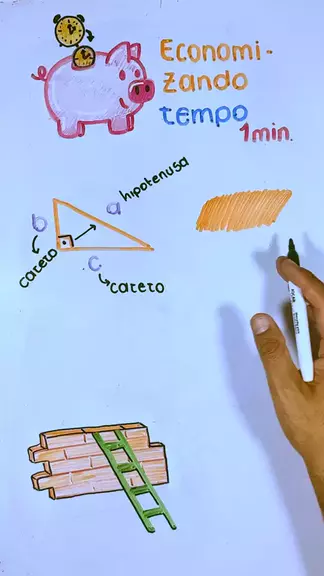 Economi-
zando
tempo
1min.
hipotenusa
a
b
cateto
c
cateto